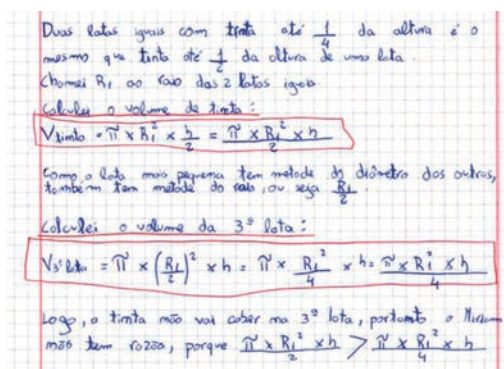 Duas latas iguais com tinta até 1/4 da altura é o
mesmo que tinta até 1/2 da altura de uma lata.
Chamei R₁ ao raio das 2 latas iguais.
Calculei o volume de tinta:
Vtinta = π × R₁² × h/2 = (π × R₁² × h)/2
Como a lata mais pequena tem metade do diâmetro das outras,
também tem metade do raio, ou seja R₁/2.
Calculei o volume da 3ª lata:
V3ª lata = π × (R₁/2)² × h = π × R₁²/4 × h = (π × R₁² × h)/4
Logo, a tinta não vai caber na 3ª lata, portanto a Miriam
não tem razão, porque (π × R₁² × h)/2 > (π × R₁² × h)/4